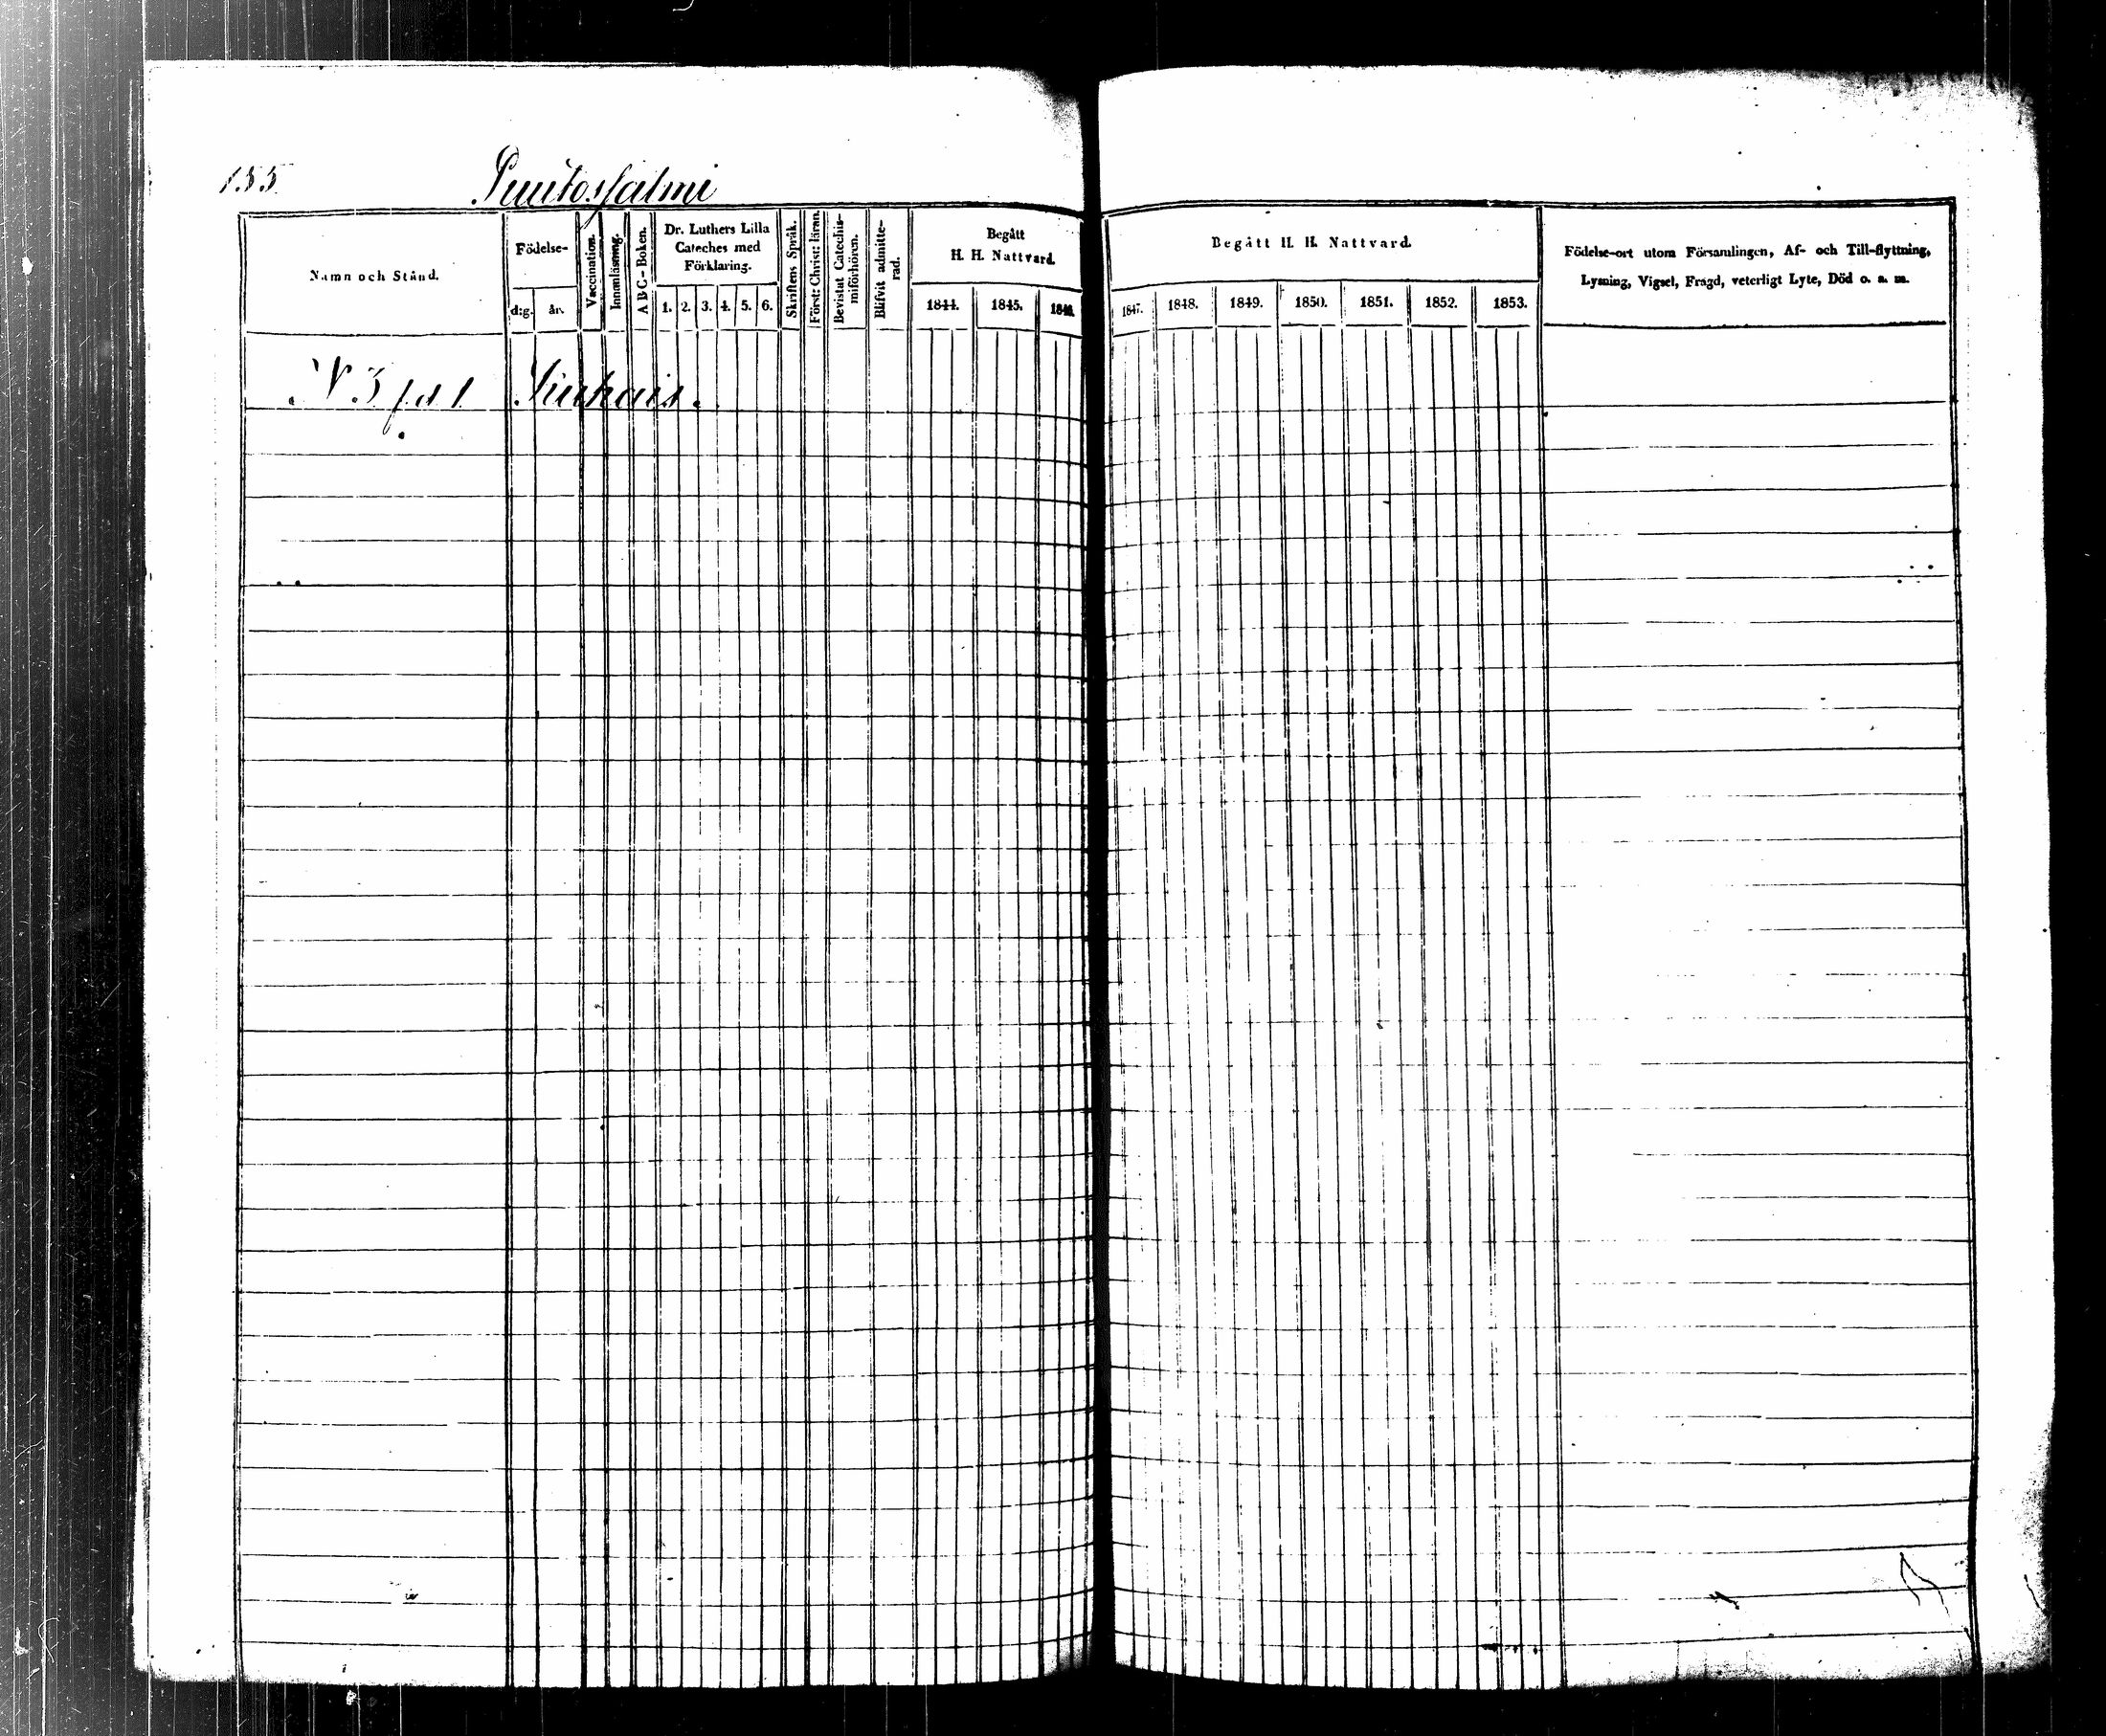 155.
Puutossalmi
Namn och Stånd.
Födelse-
dag. år.
Vaccination.
Innanläsning.
ABC-Boken.
Dr. Luthers Lilla
Cateches med
Förklaring.
1. 2. 3. 4. 5. 6.
Skriftens Språk.
Först: Christ: läran.
Bevistat Catechis-
miförhören.
Blifvit admitte-
rad.
Begått
H. H. Nattvard.
1844. 1845. 1846.
Begått H. H. Nattvard.
1847. 1848. 1849. 1850. 1851. 1852. 1853.
Födelse-ort utom Församlingen, Af- och Till-flyttning,
Lysning, Vigsel, Frägd, veterligt Lyte, Död o. s. m.
N 3